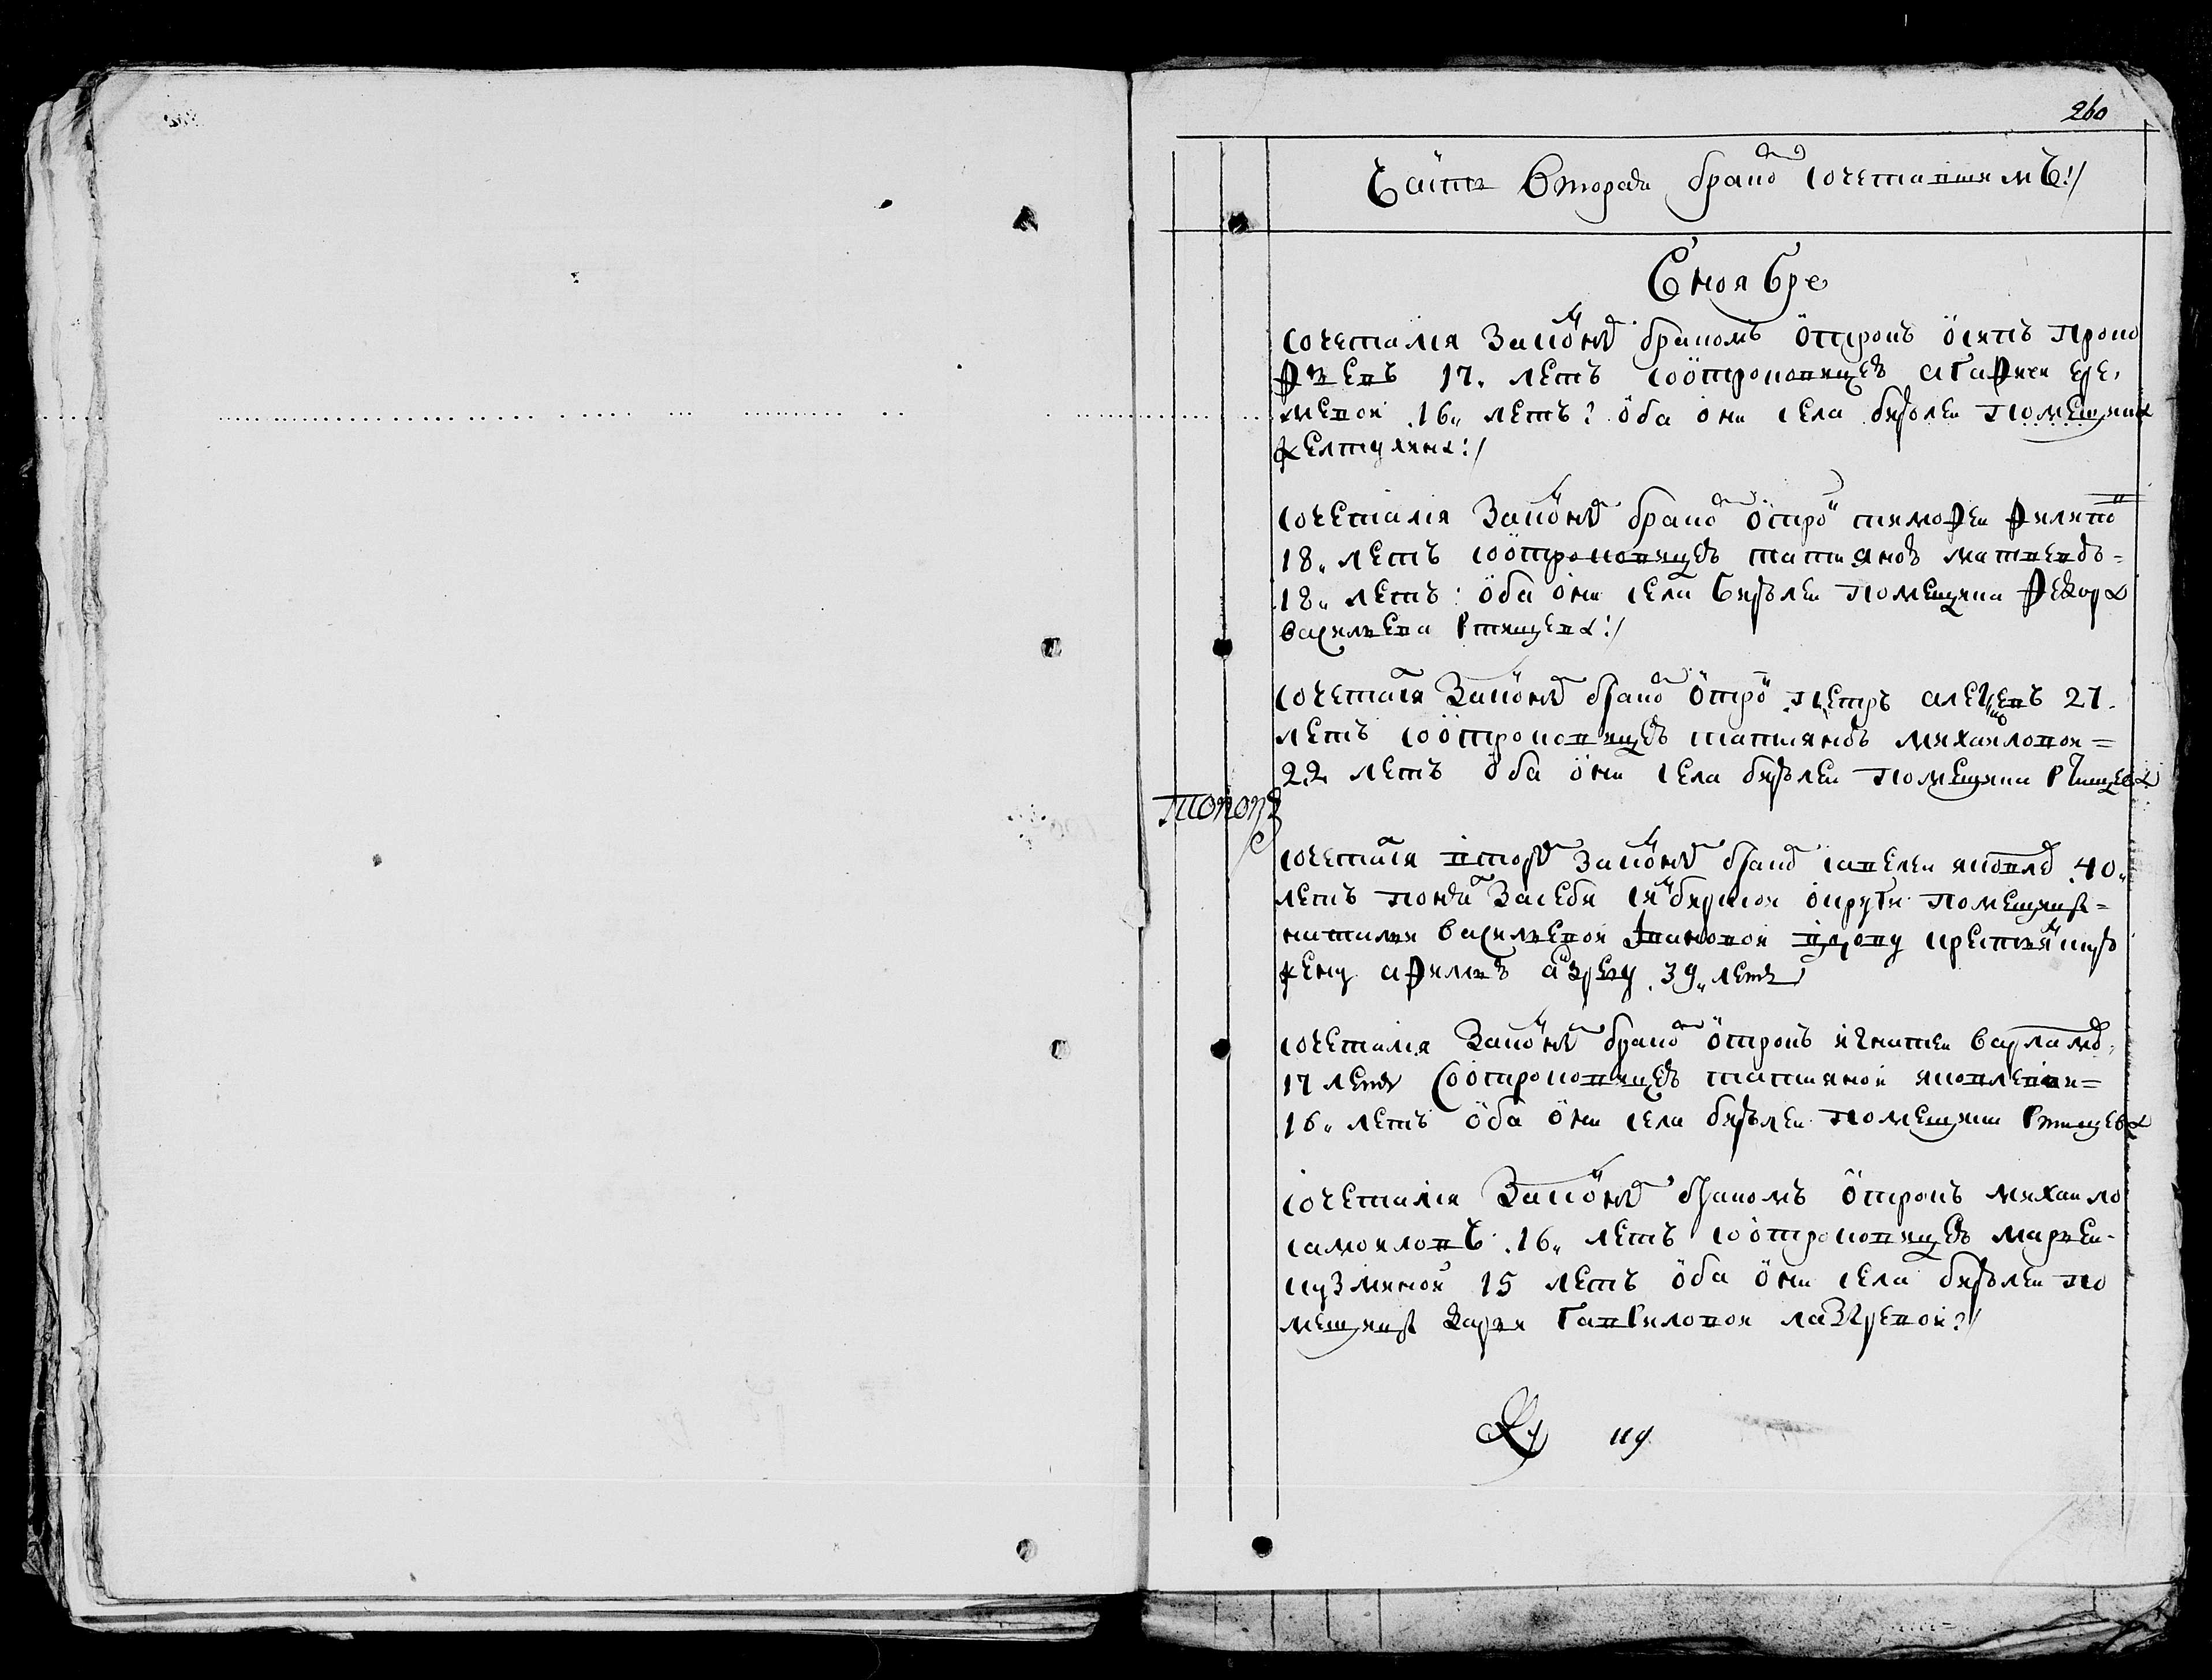 260
Часть Вторая брако сочетавшимъ
В ноябре
Сочетался Закон бракомъ отрокъ осипъ проко
фьевъ 17. летъ сотроковицею агафиеи ере,
меевой 16„ летъ: оба они села помещика
желтухина:/
Сочетался Закон брако отро тимофеи филипо
18„ летъ сотроковицею татианою матвеевою=
18„ летъ: оба они села помещика федора
васильева ртищева:/
Сочетался Закон брако отро петръ алекеевъ 21.
летъ сотроковицею татианою михаиловои=
22 летъ оба они села помещика ртищева
сочетался втори Закон брако савелеи яковле 40„
летъ поня За себя симбирской округи помещицы=
натальи васильевои вдову крестьянску
жену афимью андрееву 39„ летъ
Сочетался Закон брако отрокъ игнатеи варламо
17 летъ сотроковицею татианой яковлевои=
16„ летъ оба они села помещика ртищева
Сочетался Закон бракомъ отрокъ михаило
самоиловъ 16„ летъ сотроковицею марьеи
кузминой 15 летъ оба они села по
мещицы дарьи гавриловои лазаревои:/